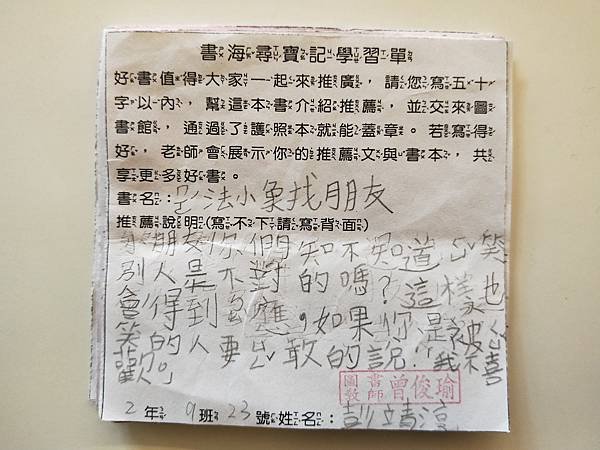 書海尋寶記學習單
好書值得大家一起來推廣，請您寫五十
字以內，幫這本書介紹推薦，並交來圖
書館，通過了護照本就能蓋章。若寫得
好，老師會展示你的推薦文與書本，共
享更多好書。
書名：法小象找朋友
推薦說明(寫不下請寫背面)
朋友你們知不知道笑
別人是不對的嗎？這樣也
會得到應，如果你是被
笑的人要敢的說：「我不喜
歡。」
圖書教師 曾俊瑜
2年9班23號姓名：彭靖